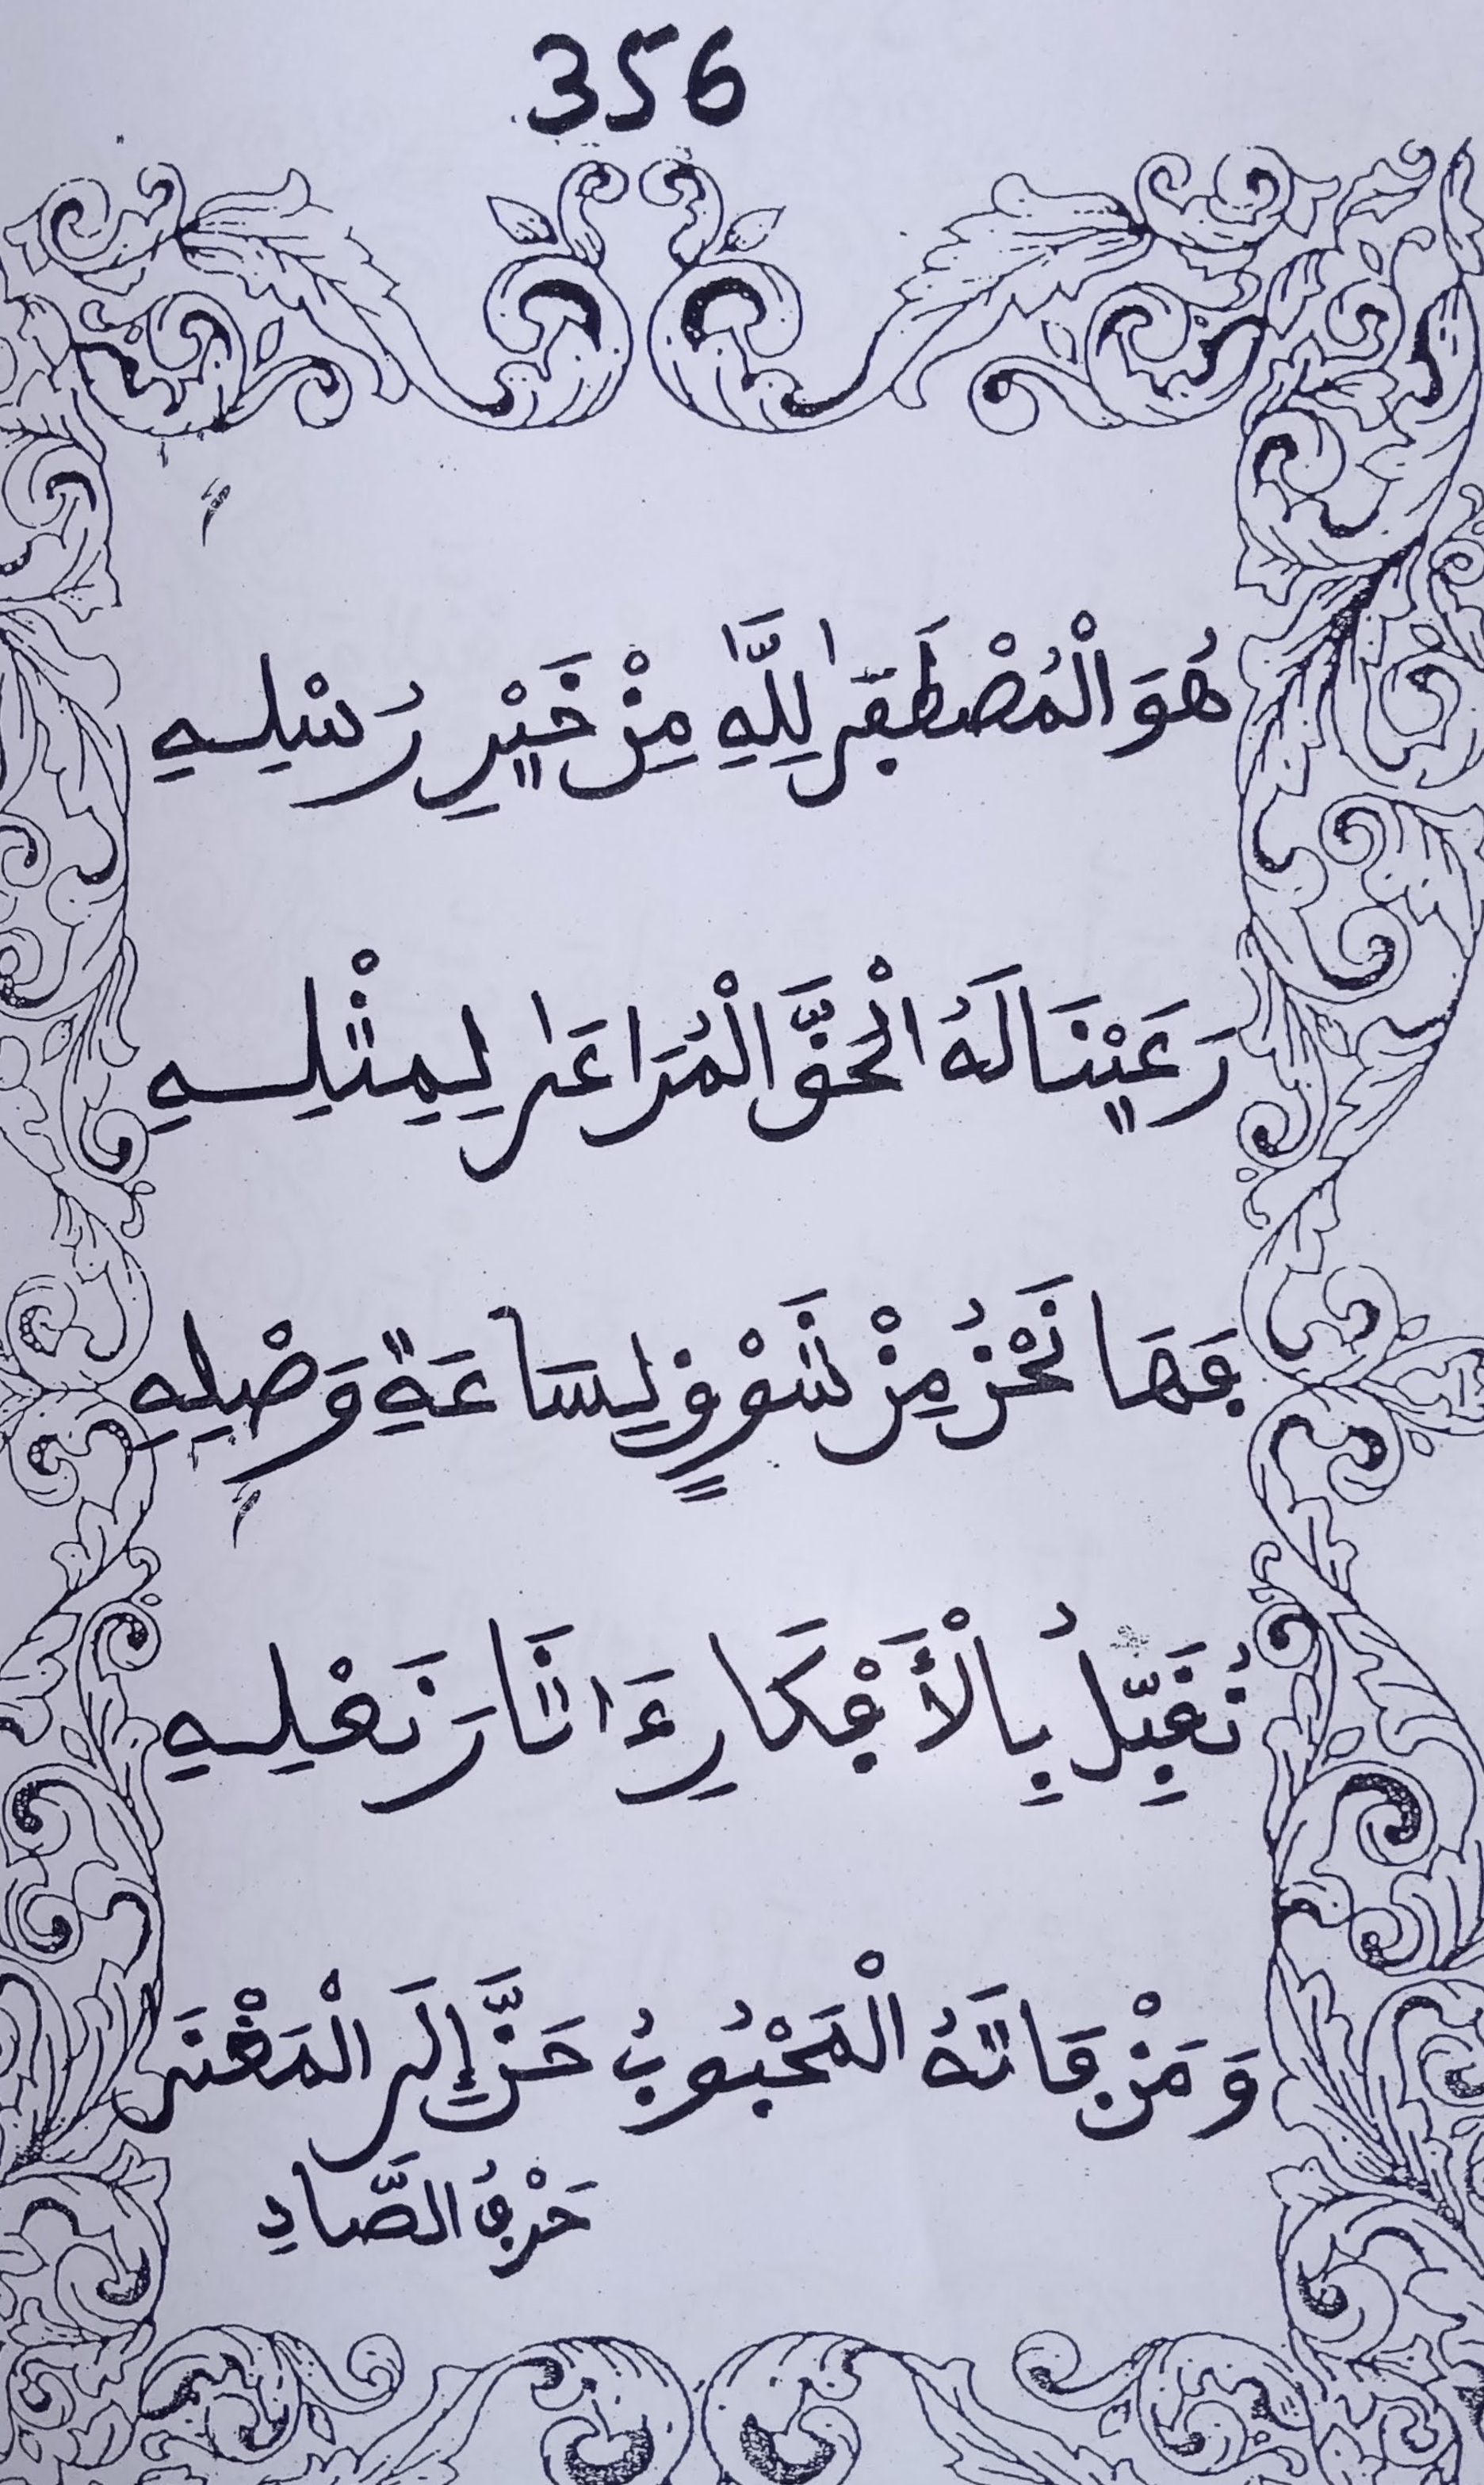 356
هُوَ الْمُصْطَفَىٰ لِلَّهِ مِنْ خَيْرِ رُسْلِهِ
رَعَيْنَا لَهُ الْحَقَّ الْمُرَاعَىٰ لِمِثْلِهِ
فَهَا نَحْنُ مِنْ شَوْقٍ لِسَاعَةِ وَصْلِهِ
نُقَبِّلُ بِالْأَفْكَارِ ءَاثَارَ نَعْلِهِ
وَمَنْ فَاتَهُ الْمَحْبُوبُ حَنَّ إِلَى الْمَغْنَى
حَرْفُ الصَّادِ